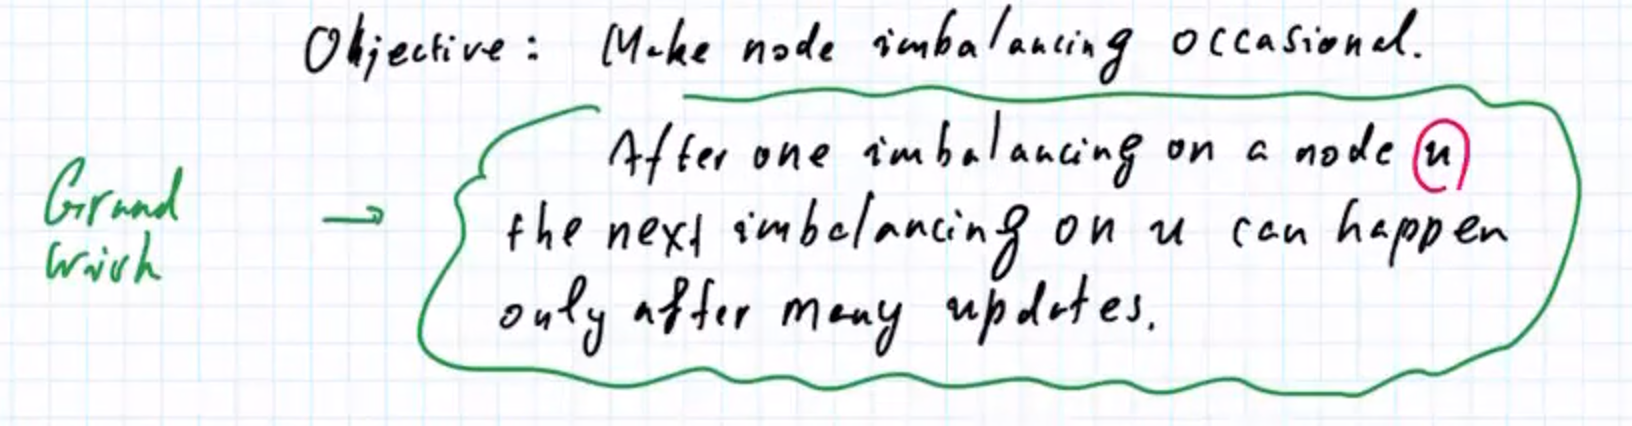 Objective: Make node imbalancing occasional.
After one imbalancing on a node u
the next imbalancing on u can happen
only after many updates.
Grand
wish
→